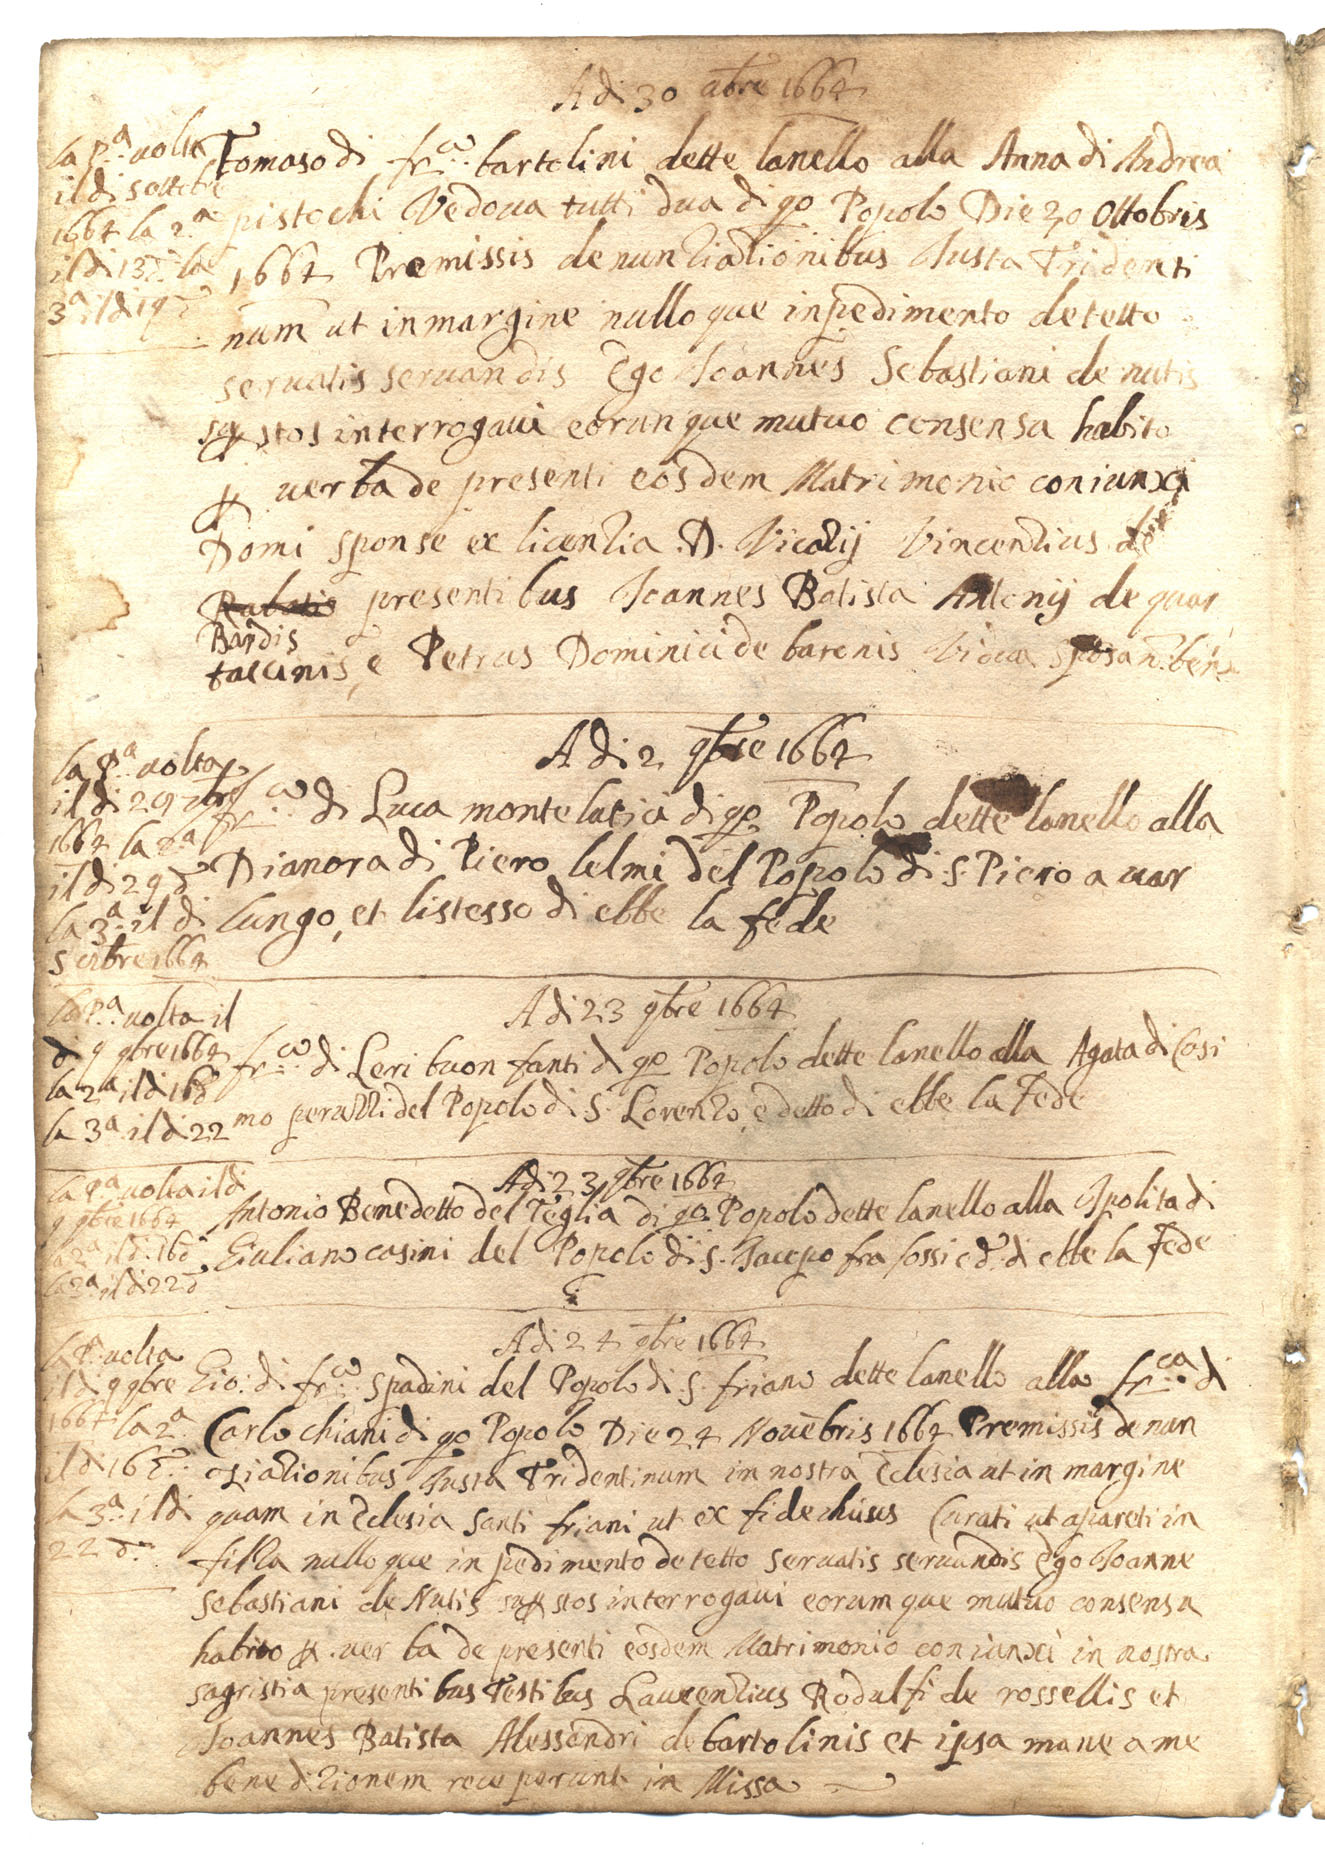 Adi 30 8bre 1664
la P.ª volta
il di 5 ottobre
1664 la 2.ª
il di 13 d. la
3.ª il di 19 d.
Tomaso di fr.co bartolini dette lanello alla Anna di Andrea
pistochi Vedova tutti dua di qo Popolo Die 30 Ottobris
1664 Premissis denuntiationibus Iusta Tridenti
num ut in margine nulloque inpedimento detetto
servatis servandis Ego Ioannes Sebastiani de nutis
supstos interrogavi eorunque mutuo consensu habito
p verba de presenti eosdem Matrimonio coniunxi
Domi sponse ex licentia D. Vicarij Vincentius de
Rabatis presentibus Ioannes Batista Antonij de quar
Bardis
taccinis, e Petrus Dominici de baronis Vidua sposa n. ben.
Adi 2 9bre 1664
la P.ª volta
il di 29 7bre
1664 la 2.ª
il di 29 d.
la 3.ª il di
5 8bre 1664
fr.co di Luca montelatici di qo Popolo dette lanello alla
Dianora di Piero lelmi del Popolo di S. Piero a var
lungo, et listesso di ebbe la fede
Adi 23 9bre 1664
la P.ª volta il
di 9 9bre 1664
la 2.ª il di 16 d
la 3.ª il di 22
fr.co di Leri buon fanti di qo Popolo dette lanello alla Agata di Cosi
mo peruzzi del Popolo di S. Lorenzo, e detto di ebbe la Fede
Adi 23 9bre 1664
la P.ª volta il di
9 9bre 1664
la 2.ª il di 16 d
la 3.ª il di 22 d
Antonio Benedetto del Teglia di qo Popolo dette lanello alla Ipolita di
Giuliano casini del Popolo di S. Iacopo fra fossi e d.o di ebbe la Fede
Adi 24 9bre 1664
la P.ª volta
il di 9 9bre
1664 la 2.ª
il di 16 d.
la 3.ª il di
22 d.
Gio: di fr.co spadini del Popolo di S. friano dette lanello alla fr.ca di
Carlo chiani di qo Popolo Die 24 Novebris 1664 Premissis denun
tiationibus Iusta Tridentinum in nostra Eclesia ut in margine
quam in Eclesia Santi friani ut ex fide chuius Curati ut apareti in
filla nulloque inpedimento detetto servatis servandis Ego Ioanne
Sebastiani de Nutis supstos interrogavi eorumque mutuo consensu
habito p. verba de presenti eosdem Matrimonio coniunxi in nostra
sagristia presentibus Testibus Laurentius Rodulfi de rossellis et
Ioannes Batista Alessandri de bartolinis et ipsa mane a me
benedizionem receperunt in Missa